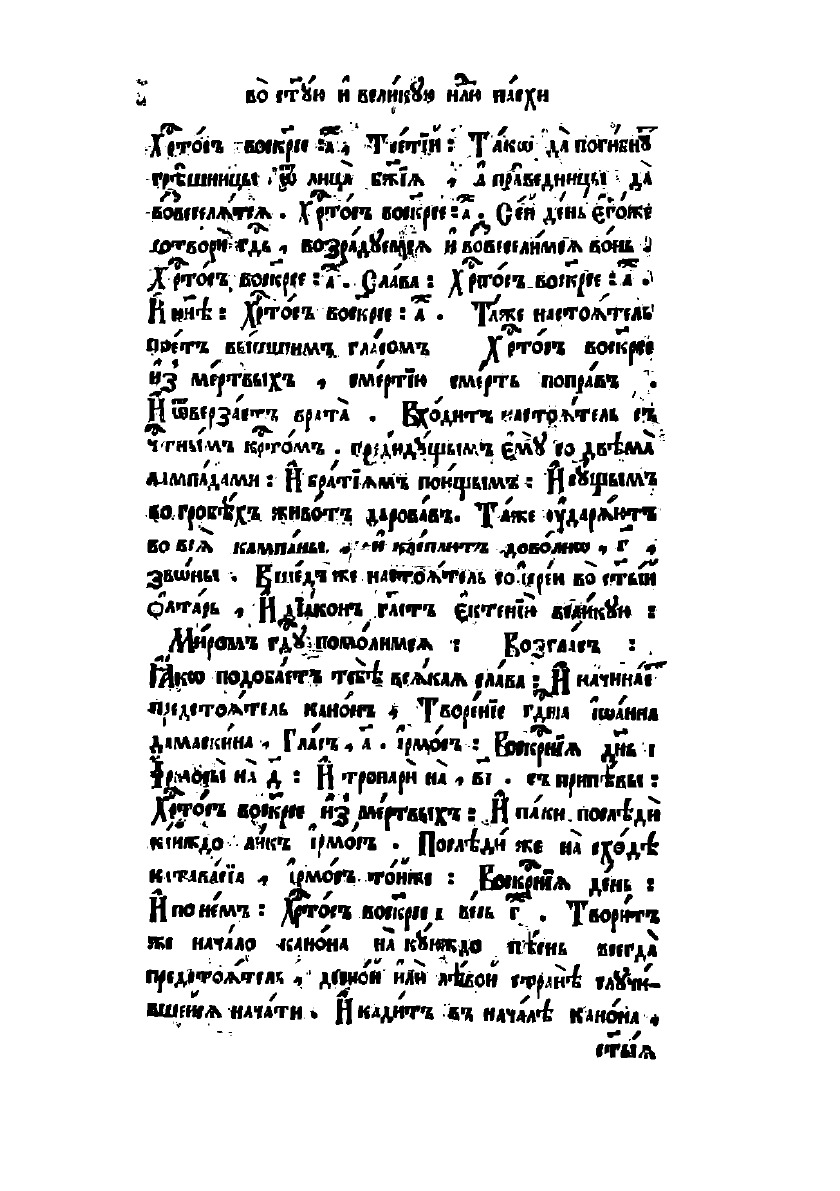 во ст҃ꙋю и҆ вели́кꙋю нлⷣю па́схи
Хрⷭ҇то́съ воскр҃се : а҃ , Тре́тїй : Та́кѡ да поги́бнꙋтъ
грѣ́шницы ѿ лица̀ бж҃їѧ , а҆ пра́ведницы да
возвеселѧ́тсѧ . Хрⷭ҇то́съ воскр҃се : а҃ . Се́й де́нь є҆го́же
сотворѝ гдⷭ҇ь , возра́дꙋемсѧ и҆ возвесели́мсѧ во́нь :
Хрⷭ҇то́съ воскр҃се : а҃ . Сла́ва : Хрⷭ҇то́съ воскр҃се : а҃ .
И҆ ны́нѣ : Хрⷭ҇то́съ воскр҃се : а҃ . Та́же настоѧ́тель
пое́тъ вы́сшимъ гла́сомъ Хрⷭ҇то́съ воскр҃се
и҆з̾ ме́ртвыхъ , сме́ртїю сме́рть попра́въ .
И҆ ѿверза́етъ врата̀ . Вхо́дитъ настоѧ́тель съ
чⷭ҇тны́мъ крⷭ҇то́мъ . предидꙋ́щымъ є҆мꙋ̀ со двѣма̀
лампа́дами : И҆ бра́тїѧмъ пою́щымъ : И҆ сꙋ́щымъ
во гробѣ́хъ живо́тъ дарова́въ . Та́же ᲂу҆дарѧ́ютъ
во всѧ̑ кампа́ны , и҆ клеплю́тъ дово́лнѡ , г҃ ,
зво́ны . Вше́дъ же настоѧ́тель со і҆ере́и во ст҃ы́й
ѻ҆лта́рь , И҆ дїа́конъ гл҃етъ є҆ктенїю̀ вели́кꙋю :
Ми́ромъ гдⷭ҇ꙋ помо́лимсѧ : Возгла́съ :
Ꙗ҆́кѡ подоба́етъ тебѣ̀ всѧ́каѧ сла́ва : И҆ начина́етъ
предстоѧ́тель кано́нъ , Творе́нїе гдⷭ҇на і҆ѡа́нна
дамаски́на , Гла́съ , а҃ . і҆рмо́съ : Воскрⷭ҇нїѧ дн҃ь :
І҆рмосы̀ на д҃ : И҆ тропарѝ на , в҃і . съ припѣ́вы :
Хрⷭ҇то́съ воскр҃се и҆з̾ ме́ртвыхъ : И҆ па́ки послѣдѝ
кі́йждо ли́къ і҆рмо́съ . Послѣди́ же на схо́дѣ
катава́сїа , і҆рмо́съ то́йже : Воскрⷭ҇нїѧ де́нь :
И҆ по не́мъ : Хрⷭ҇то́съ воскр҃се : ве́сь г҃ . Твори́тъ
же нача́ло кано́на на кꙋ́юждо пѣ́снь всегда̀
предстоѧ́тель , десно́й и҆лѝ лѣ́вой странѣ̀ слꙋчи-
вше́йсѧ нача́ти . И҆ кади́тъ въ нача́лѣ кано́на ,
ст҃ы́ѧ